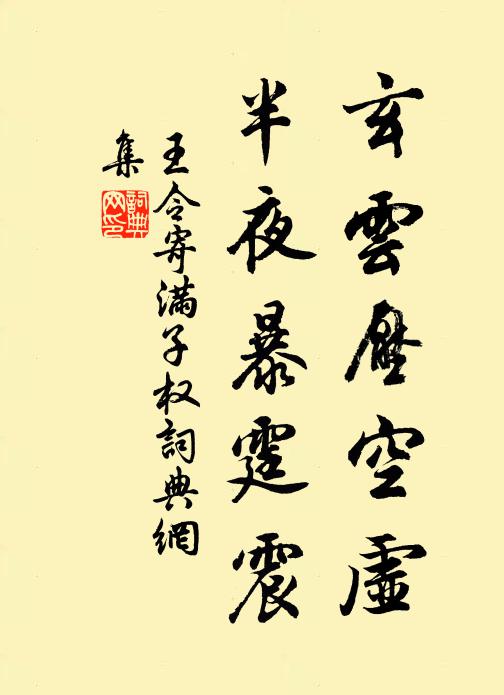 玄雲壓空虛
半夜暴霆震
王令寄滿子权詞典網
集
詞典
网印